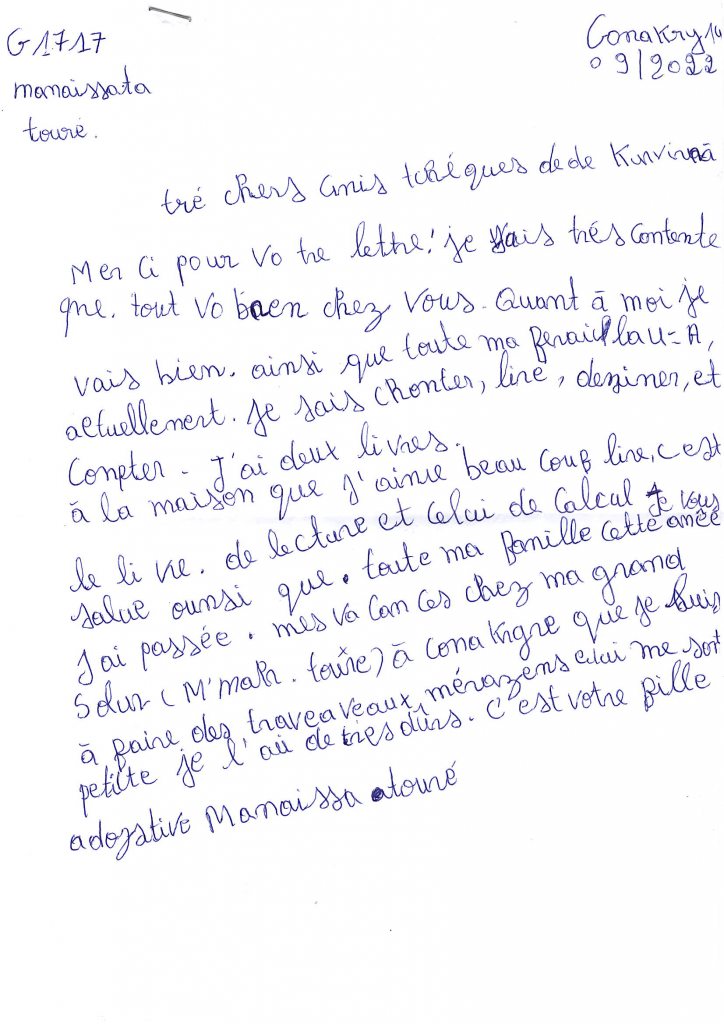 G1717
Conakry 14
09/2022
manaissata
touré.
tré chers amis tchéques de de
Mer ci pour vo tre lettre! je vais trés contente
que. tout va bien chez vous. Quant à moi je
vais bien. ainsi que toute ma
actuellement. je sais chonter, lire, dessiner, et
Compter - J'ai deux livres.
à la maison que J'aime beau coup lire, c'est
le li vre. de lecture et celui de Calcul Je vous
salue ounsi que. toute ma famille cette anée
J'ai passée. mes va can ces chez ma grand
Sœur (M'mah. touré) à conakry que je suis
à faire des traveaveaux, me sort
petite je l'ai de tres dûrs. C'est votre fille
adoptive Manaissa atouré